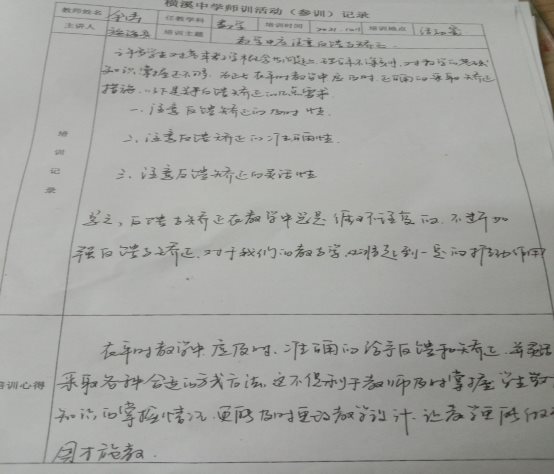 横溪中学师训活动（参训）记录
教师姓名 任教学科 数学 培训时间 培训地点
主讲人 培训主题 数学中应注意反馈与矫正
许多学生对基本数学概念
知识掌握还不够 在平时教学中应及时正确的采取矫正
措施，以下是关于反馈矫正的几点要求
一、注意反馈矫正的及时性
二、注意反馈矫正的准确性
三、注意反馈矫正的灵活性
总之，反馈与矫正在教学中总是循环往复的，不断加
强反馈与矫正，对于我们的教与学，必将起到一定的推动作用
培训记录
在平时教学中，应及时、准确的给予反馈和矫正，并灵活
采取各种合适的方式方法，这不仅利于教师及时掌握学生对
知识的掌握情况，更能及时更改教学设计，让教学更能做到
因才施教.
培训心得